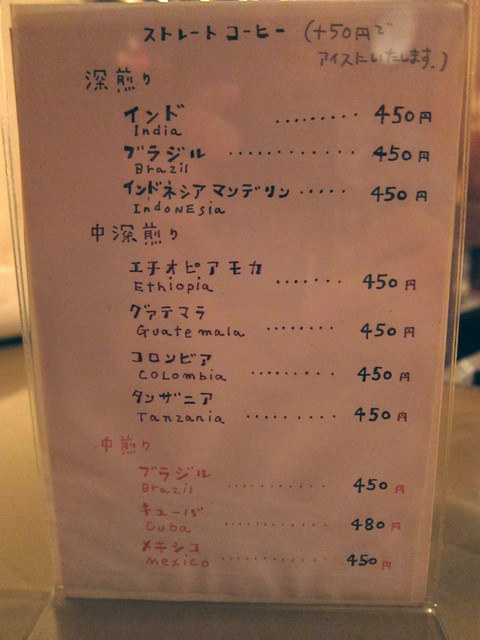 ストレートコーヒー (+50円で
アイスにいたします。)
深煎り
インド ......... 450円
India
ブラジル ............. 450円
Brazil
インドネシアマンデリン ..... 450円
Indonesia
中深煎り
エチオピアモカ ....... 450円
Ethiopia
グァテマラ ........ 450円
Guatemala
コロンビア ......... 450円
Colombia
タンザニア .......... 450円
Tanzania
中煎り
ブラジル ........... 450円
Brazil
キューバ ........... 480円
Cuba
メキシコ ........... 450円
mexico